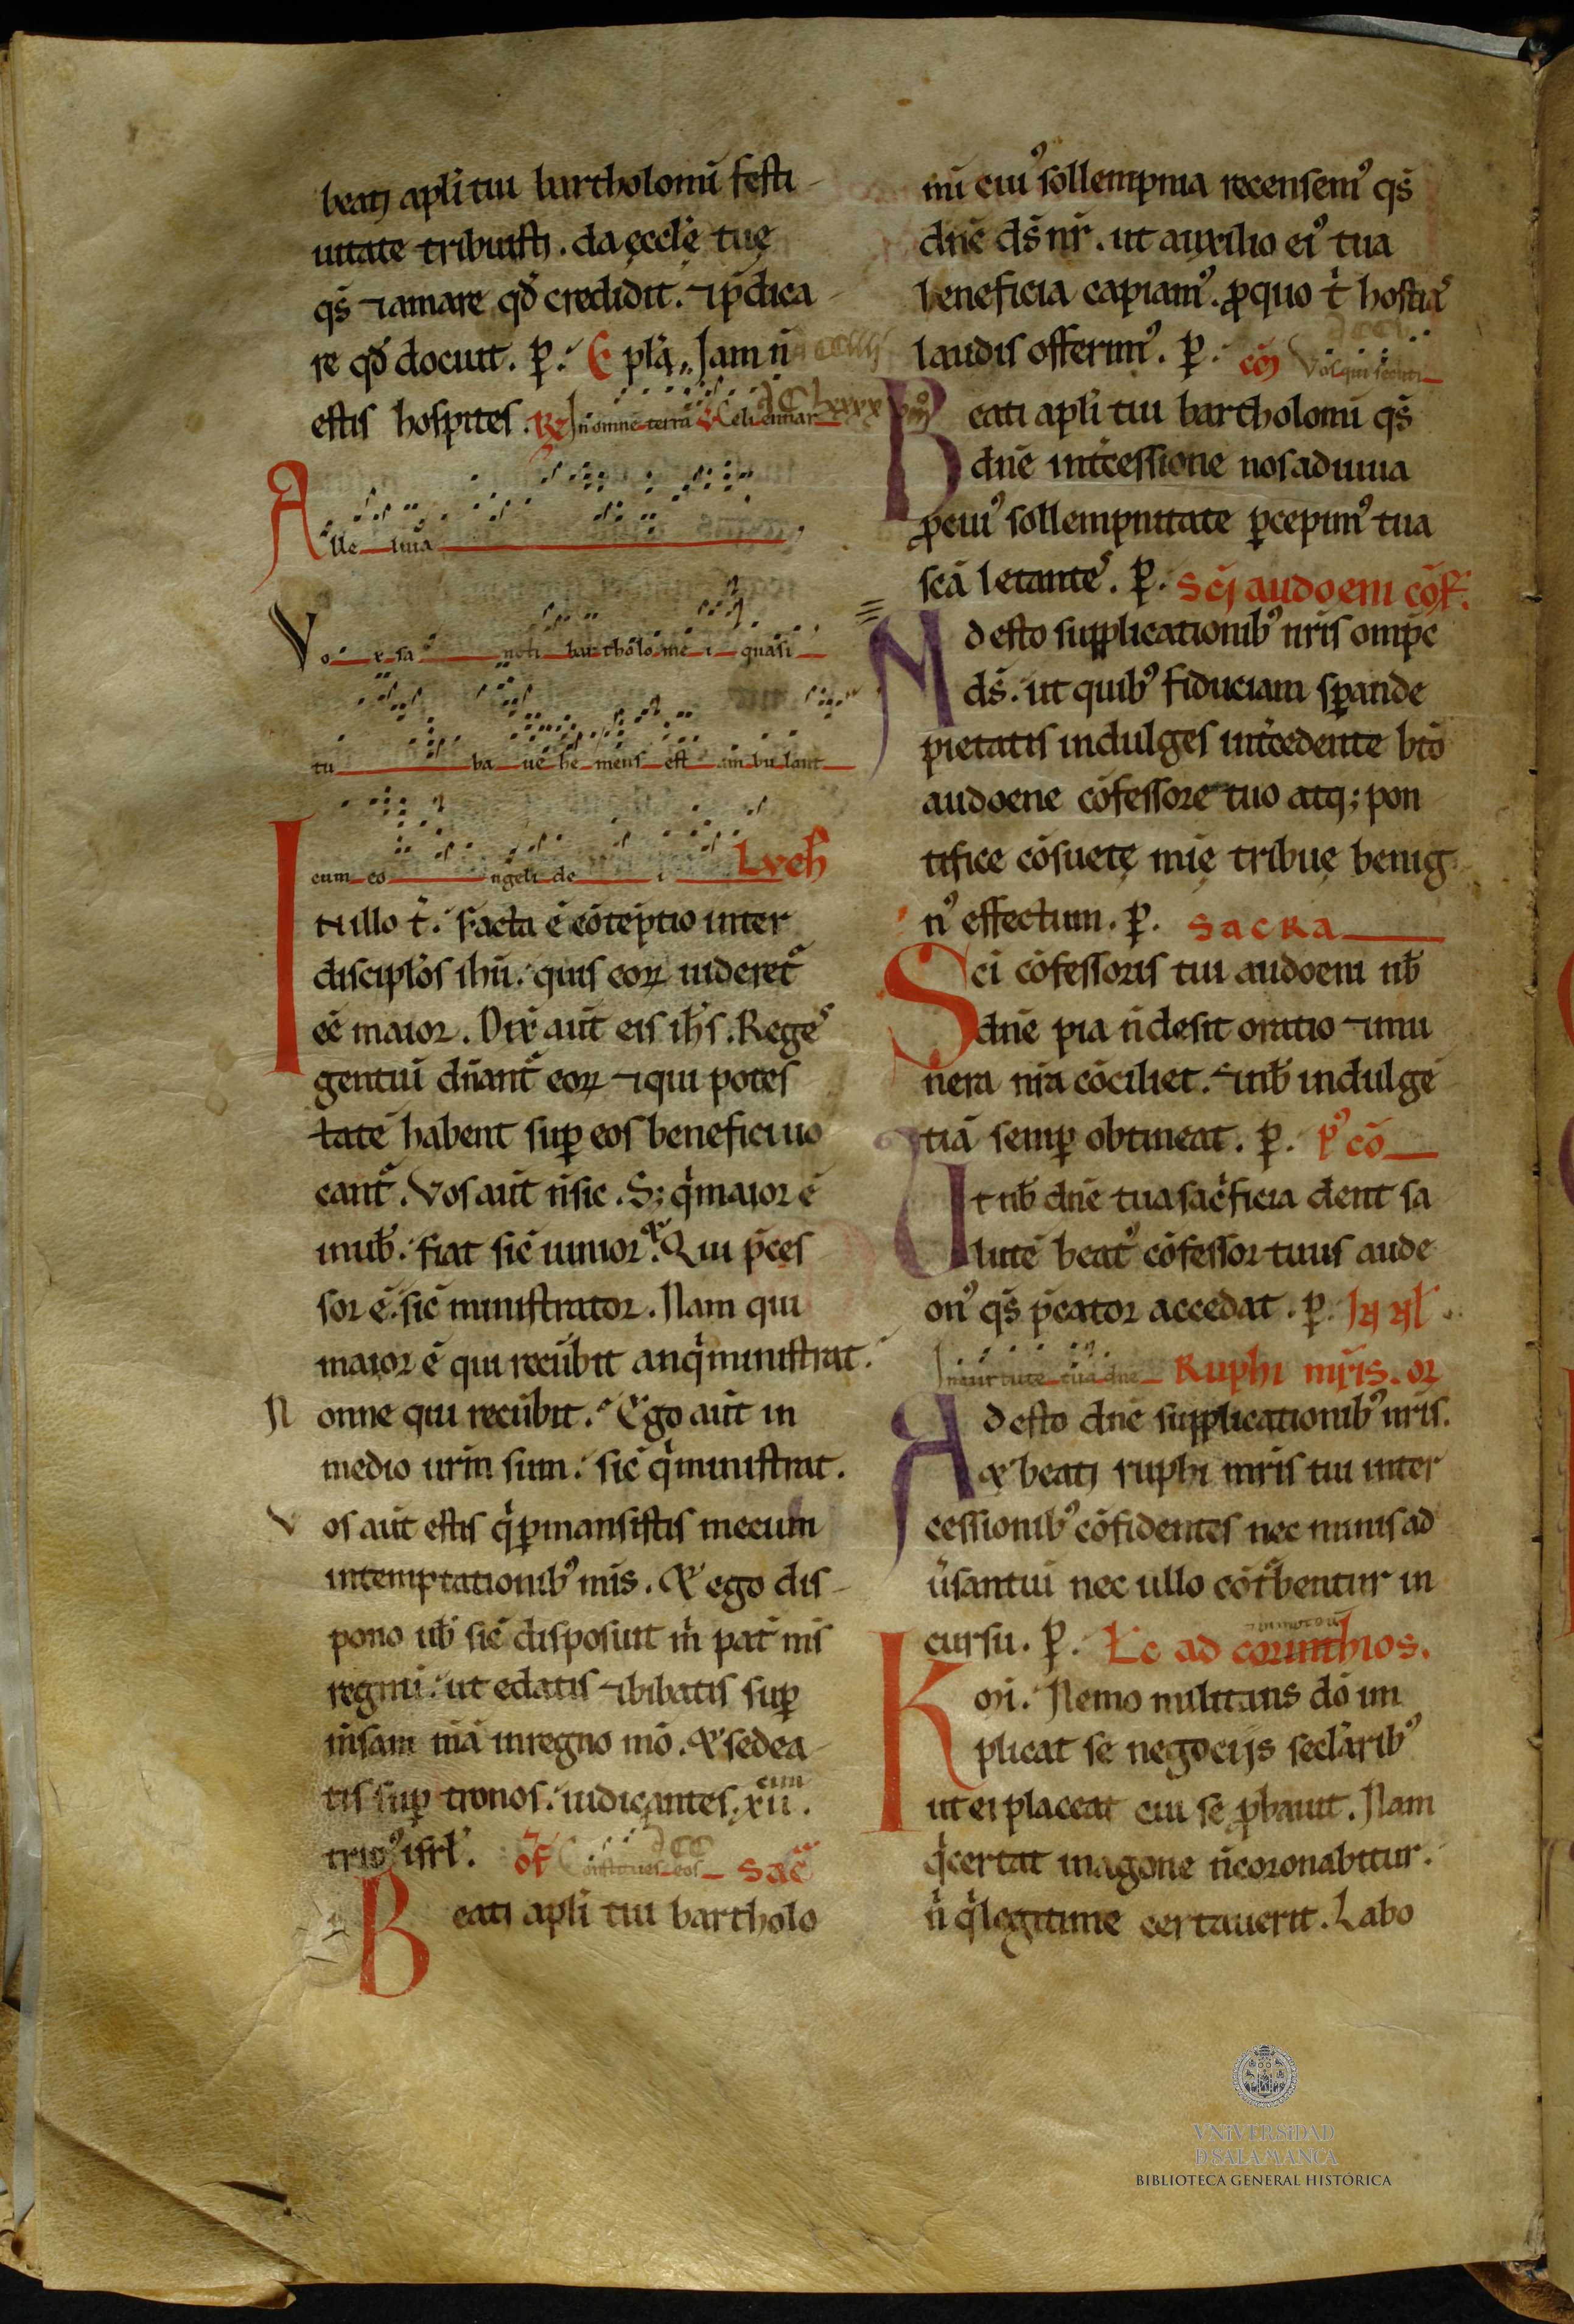 beati apłi tui bartholomi festi
uitate tribuisti. da ęccłę tuę
qs̄ ⁊ amare qd̄ credidit. ⁊ p̄dica
re qd̄ docuit. p̱. Ep̄la. Jam n̄
estis hospites. R̄e In omnē terrā v̄ Celi enar
Alleluia
Vox sancti bartholomei quasi
tuba uehemens est ambulant
cum eo angeli dei Lvch
In illo t̄. Facta ē cōteptio inter
disciplos ihū. quis eoꝝ uideret̄
eē maior. Dix̄ aūt eis ih̄s. Reges
gentiū dn̄ant̄ eoꝝ ⁊ qui potes
tatē habent sup̱ eos benefici uo
cant̄. Vos aūt n̄ sic. S; q̄ maior ē
in uob̄. fiat sic̄ iunior. Et Qui p̄ces
sor ē. sic̄ ministrator. Nam qui
maior ē qui recūbit an q̄ ministrat.
Nonne qui recūbit. Ego aūt in
medio ur̄m sum. sic̄ q̄ ministrat.
Vos aūt estis q̄ p̱mansistis mecum
in temptationib' mīs. & ego dis
pono uob̄ sic̄ disposuit m̄ pat̄ mīs
regnū. ut edatis ⁊ bibatis sup̱
m̄sam mā in regno mō. & sedea
tis sup̱ tronos. iudicantes. xii.cim
trib' isrł. of̄ Constitues eos sac̄
Beati apłi tui bartholo
mi cui' sollempnia recensem' qs̄
dn̄e ds̄ nr̄. ut auxilio ei' tua
beneficia capiam'. ꝓ quo t̄ hostias
laudis offerim'. p̱. cōm̄ Vos qui secuti
Beati apłi tui bartholomi qs̄
dn̄e int̄cessione nos adiuua
ꝓ cui' sollempnitate p̱cepim' tua
sc̄a letantes. p̱. Sc̄i audoeni cōf.
Adesto supplicationib' nr̄is omp̄c
ds̄. ut quib' fiduciam sp̱ande
pietatis indulges int̄cedente btō
audoene cōfessore tuo atq; pon
tifice cōsuetę mię tribue benig
n' effectum. p̱. Sacra
Sc̄i cōfessoris tui audoeni nb̄
dn̄e pia n̄ desit oratio ⁊ mu
nera nr̄a cōciliet. ⁊ nb̄ indulgē
tiā semp̱ obtineat. p̱. p' cō
Ut nb̄ dn̄e tua sac̄ficia dent sa
lutē beat' cōfessor tuus aude
on' qs̄ p̄cator accedat. p̱.
In uirtute tua dn̄e Ruphi mr̄is. or
Adesto dn̄e supplicationib' nr̄is.
& beati ruphi mr̄is tui inter
cessionib' cōfidentes nec minis ad
ūsantiū nec ullo cōt̄bentur in
cursu. p̱. Łc ad corinthios.
Km̄. Nemo militans dō im
plicat se negocijs seclarib'
ut ei placeat cui se ꝓbauit. Nam
q̄ certat in agone n̄ coronabitur.
n̄ q̄ legitime certauerit. Labo
VNIVERSIDAD
D SALAMANCA
BIBLIOTECA GENERAL HISTÓRICA